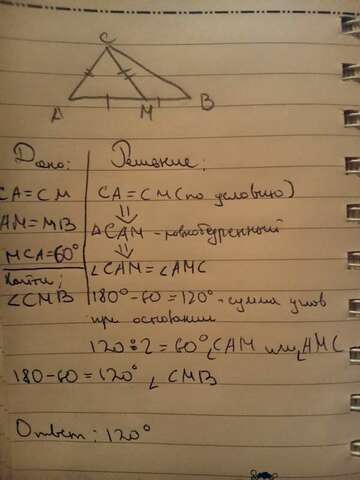 C
A M B
Дано: Решение:
CA = CM CA = CM (по условию)
AM = MB ΔCAM - равнобедренный
MCA = 60° ∠CAM = ∠AMC
Найти: ∠CMB 180° - 60 = 120° - сумма углов
при основании
120 : 2 = 60° ∠CAM или ∠AMC
180 - 60 = 120° ∠CMB
Ответ: 120°